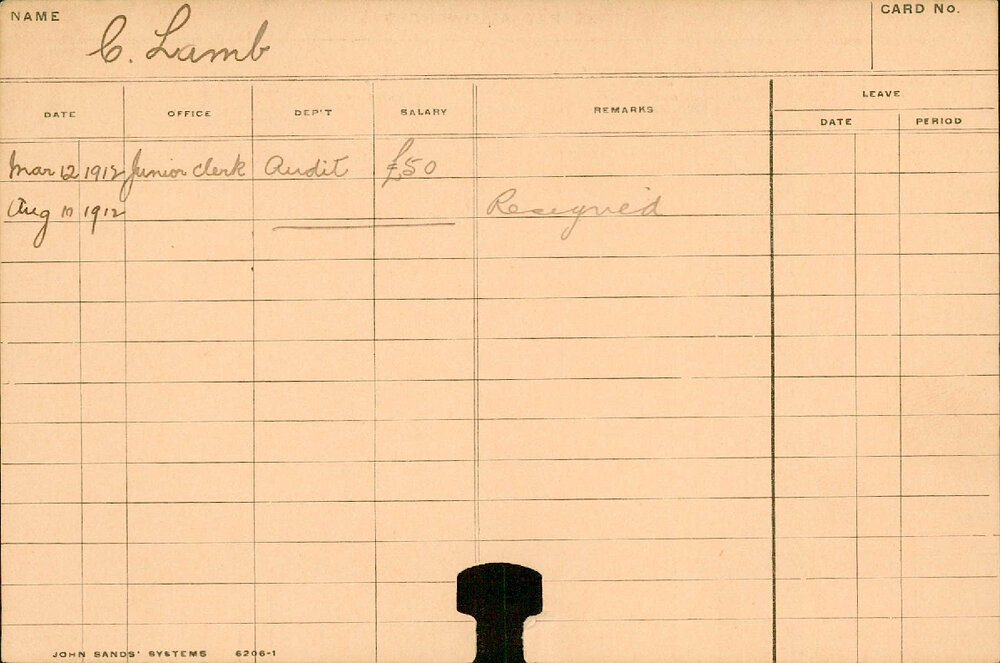 NAME
C. Lamb
CARD No.
DATE OFFICE DEP'T SALARY REMARKS LEAVE
DATE PERIOD
Mar 12 1912 Junior clerk Audit £50
Aug 1912 Resigned
JOHN SANDS' SYSTEMS 6206-1